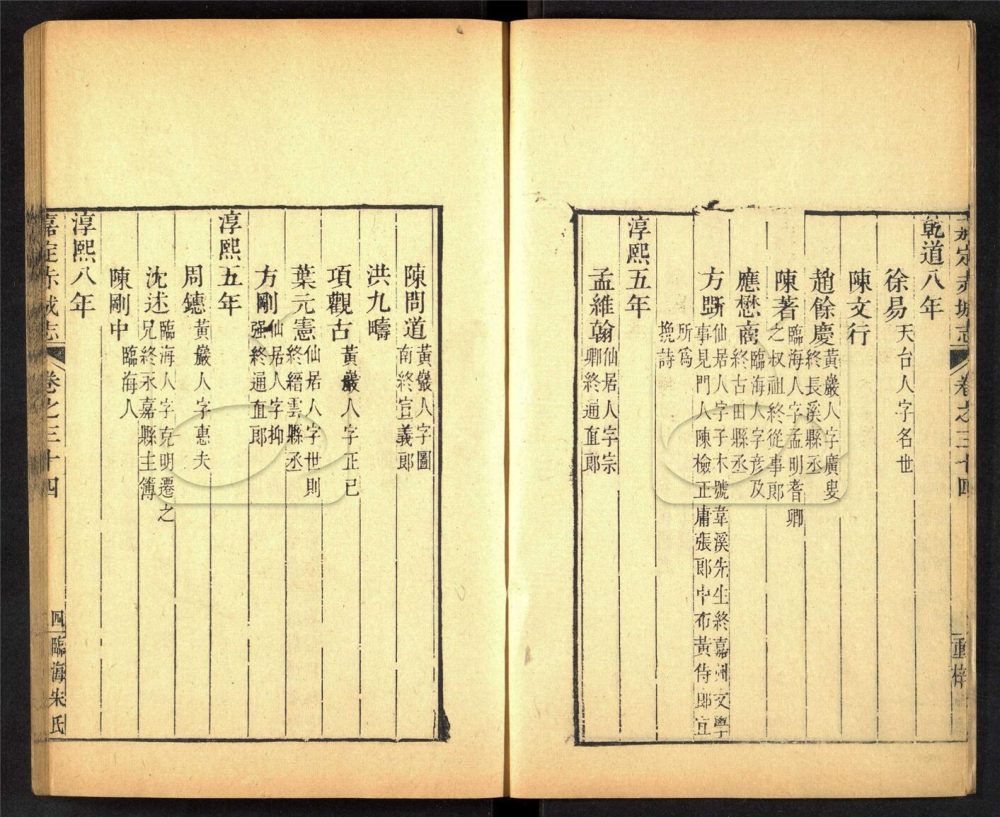 嘉定赤城志
卷之三十四
重梓
乾道八年
徐易
天台人字名世
陳文行
趙餘慶
黃巖人字廣叟
終長溪縣丞
陳著
臨海人字孟明耆卿
之叔祖終從事郎
應懋商
臨海人字彥及
終古田縣丞
方
仙居人字子木號韋溪先生終嘉州文學
事見門人陳檢正庸張郎中布黃侍郎宜
所爲
挽詩
淳熙五年
孟維翰
仙居人字宗
卿終通直郎
陳問道
黃巖人字圖
南終宣義郎
洪九疇
項觀古
黃巖人字正己
葉元憲
仙居人字世則
終縉雲縣丞
方剛
仙居人字抑
强終通直郎
淳熙五年
周鏸
黃巖人字惠夫
沈述
臨海人字克明遷之
兄終永嘉縣主簿
陳剛中
臨海人
淳熙八年
嘉定赤城志
卷之三十四
四
臨海宋氏